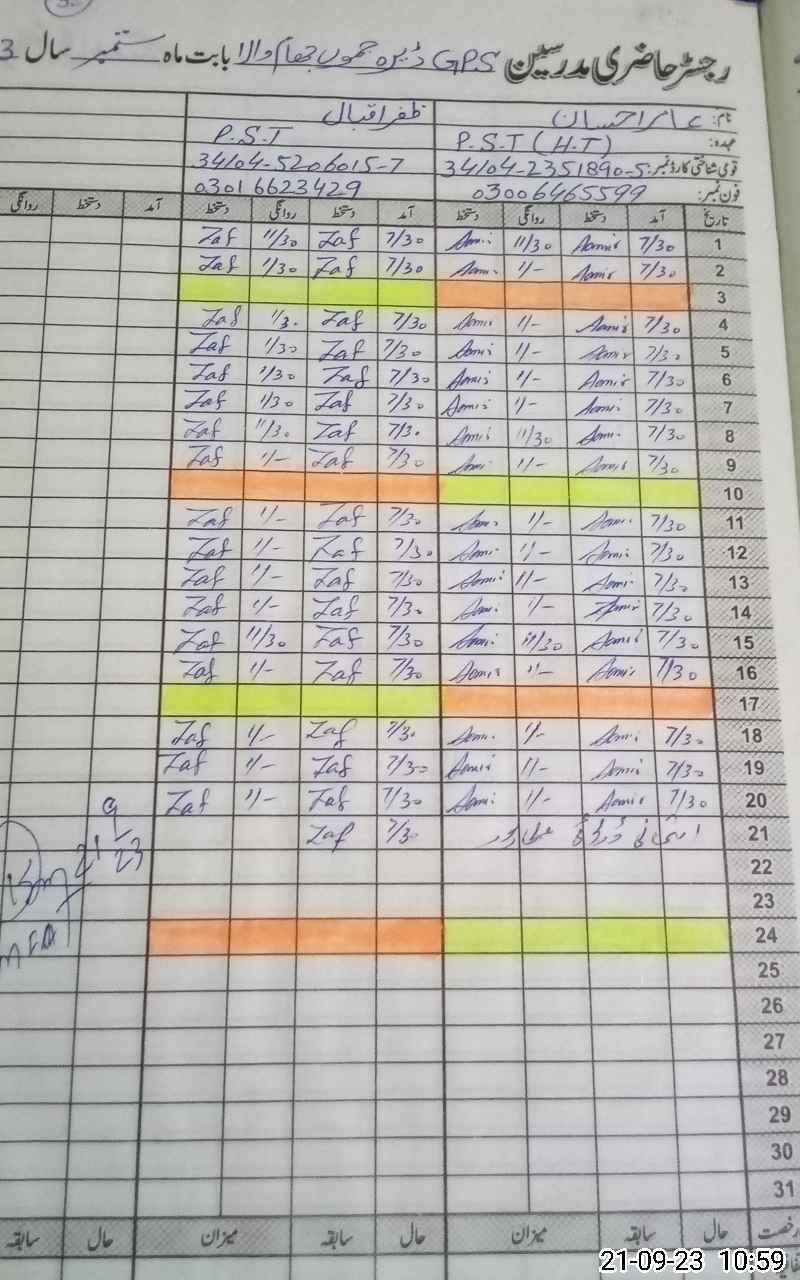 رجسٹر حاضری مدرسین GPS ڈیرہ جموں جھام والا بابت ماہ ستمبر سال 3
نام: عامر احسان ظفر اقبال
عہدہ: P.S.T (H.T) P.S.T
قومی شناختی کارڈ نمبر: 34104-2351890-5 34104-5206015-7
فون نمبر: 03006465599 03016623429
تاریخ آمد دستخط روانگی دستخط آمد دستخط روانگی دستخط آمد دستخط روانگی
1 7/30 Aamir 11/30 Aamir 7/30 Zaf 11/30 Zaf
2 7/30 Aamir 11/- Aamir 7/30 Zaf 11/30 Zaf
3
4 7/30 Aamir 11/- Aamir 7/30 Zaf 11/30 Zaf
5 7/30 Aamir 11/- Aamir 7/30 Zaf 11/30 Zaf
6 7/30 Aamir 11/- Aamir 7/30 Zaf 11/30 Zaf
7 7/30 Aamir 11/- Aamir 7/30 Zaf 11/30 Zaf
8 7/30 Aamir 11/30 Aamir 7/30 Zaf 11/30 Zaf
9 7/30 Aamir 11/- Aamir 7/30 Zaf 11/- Zaf
10
11 7/30 Aamir 11/- Aamir 7/30 Zaf 11/- Zaf
12 7/30 Aamir 11/- Aamir 7/30 Zaf 11/- Zaf
13 7/30 Aamir 11/- Aamir 7/30 Zaf 11/- Zaf
14 7/30 Aamir 11/- Aamir 7/30 Zaf 11/- Zaf
15 7/30 Aamir 11/30 Aamir 7/30 Zaf 11/30 Zaf
16 7/30 Aamir 11/- Aamir 7/30 Zaf 11/- Zaf
17
18 7/30 Aamir 11/- Aamir 7/30 Zaf 11/- Zaf
19 7/30 Aamir 11/- Aamir 7/30 Zaf 11/- Zaf
20 7/30 Aamir 11/- Aamir 7/30 Zaf 11/- Zaf
21 7/30 Zaf
21/9/23
22
23
24
25
26
27
28
29
30
31
رخصت حال سابقہ میزان حال سابقہ میزان حال سابقہ
21-09-23 10:59